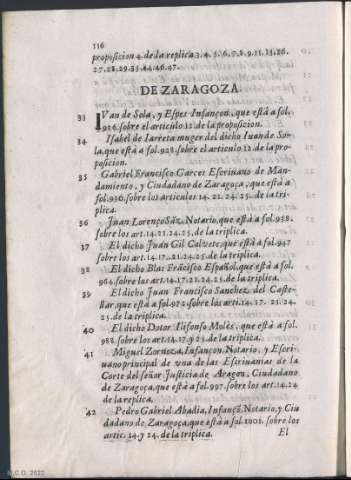 116
proposicion 4. de la replica 3. 4. 5. 6. 7. 8. 9. 11. 15. 26.
27. 28. 29. 35. 44. 46. 47.
DE ZARAGOZA.
33 IVan de Sola, y Espes Infançon, que està a fol.
926. sobre el articulo 12 de la proposicion.
34 Isabel de Iarreta muger del dicho Iuan de So-
la, que està a fol. 928. sobre el articulo 12. de la pro-
posicion.
35 Gabriel Francisco Garces Escriuano de Man-
damiento, y Ciudadano de Zaragoça, que està a
fol. 930. sobre los articulos 14. 21. 24. 25. de la tri-
plica.
36 Juan Lorenço Sãz, Notario, que està a fol. 938.
sobre los art. 14. 21. 24. 25. de la triplica.
37 El dicho Juan Gil Calvete, que està a fol. 947
sobre los art. 14. 17. 21. 24. 25. de la triplica.
38 El dicho Blas Frãcisco Español, que està a fol.
964. sobre los art. 14. 17. 21. 24. 25. de la triplica.
39 El dicho Juan Francisco Sanchez del Caste-
llar, que està a fol. 972. sobre los art. 14. 17. 21. 24.
25. de la triplica.
40 El dicho Dotor Ilifonso Moles, que està a fol.
988. sobre los art. 14. 17. y 25. de la triplica.
41 Miguel Zornoza, Infançon, Notario, y Escri-
uano principal de vna de las Escriuanias de la
Corte del señor Justicia de Aragon, Ciudadano
de Zaragoça, que està a fol. 997. sobre los art. 14. 24
de la replica.
42 Pedro Gabriel Abadia, Infançõ, Notario, y Ciu
dadano de Zaragoça, que està a fol. 1001. sobre los
artic. 14. y 24. de la triplica.
El